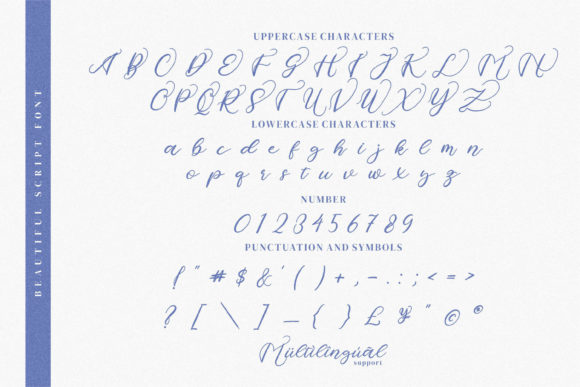 BEAUTIFUL SCRIPT FONT
UPPERCASE CHARACTERS
A B C D E F G H I J K L M N
O P Q R S T U V W X Y Z
LOWERCASE CHARACTERS
a b c d e f g h i j k l m n
o p q r s t u v w x y z
NUMBER
0 1 2 3 4 5 6 7 8 9
PUNCTUATION AND SYMBOLS
! " # $ & ' ( ) + , - . : ; < = >
? [ \ ] _ { } £ ¥ " © ®
Mültilingúäl
support